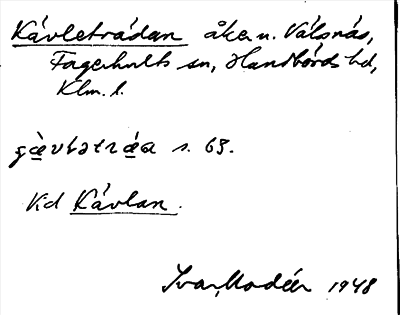 Kåvleträdan åker u. Välsnäs,
Fagerhults sn, Handbörds hd,
Klm. l.
s. 63.
Vid Kåvlan.
Ivar Modéer 1948